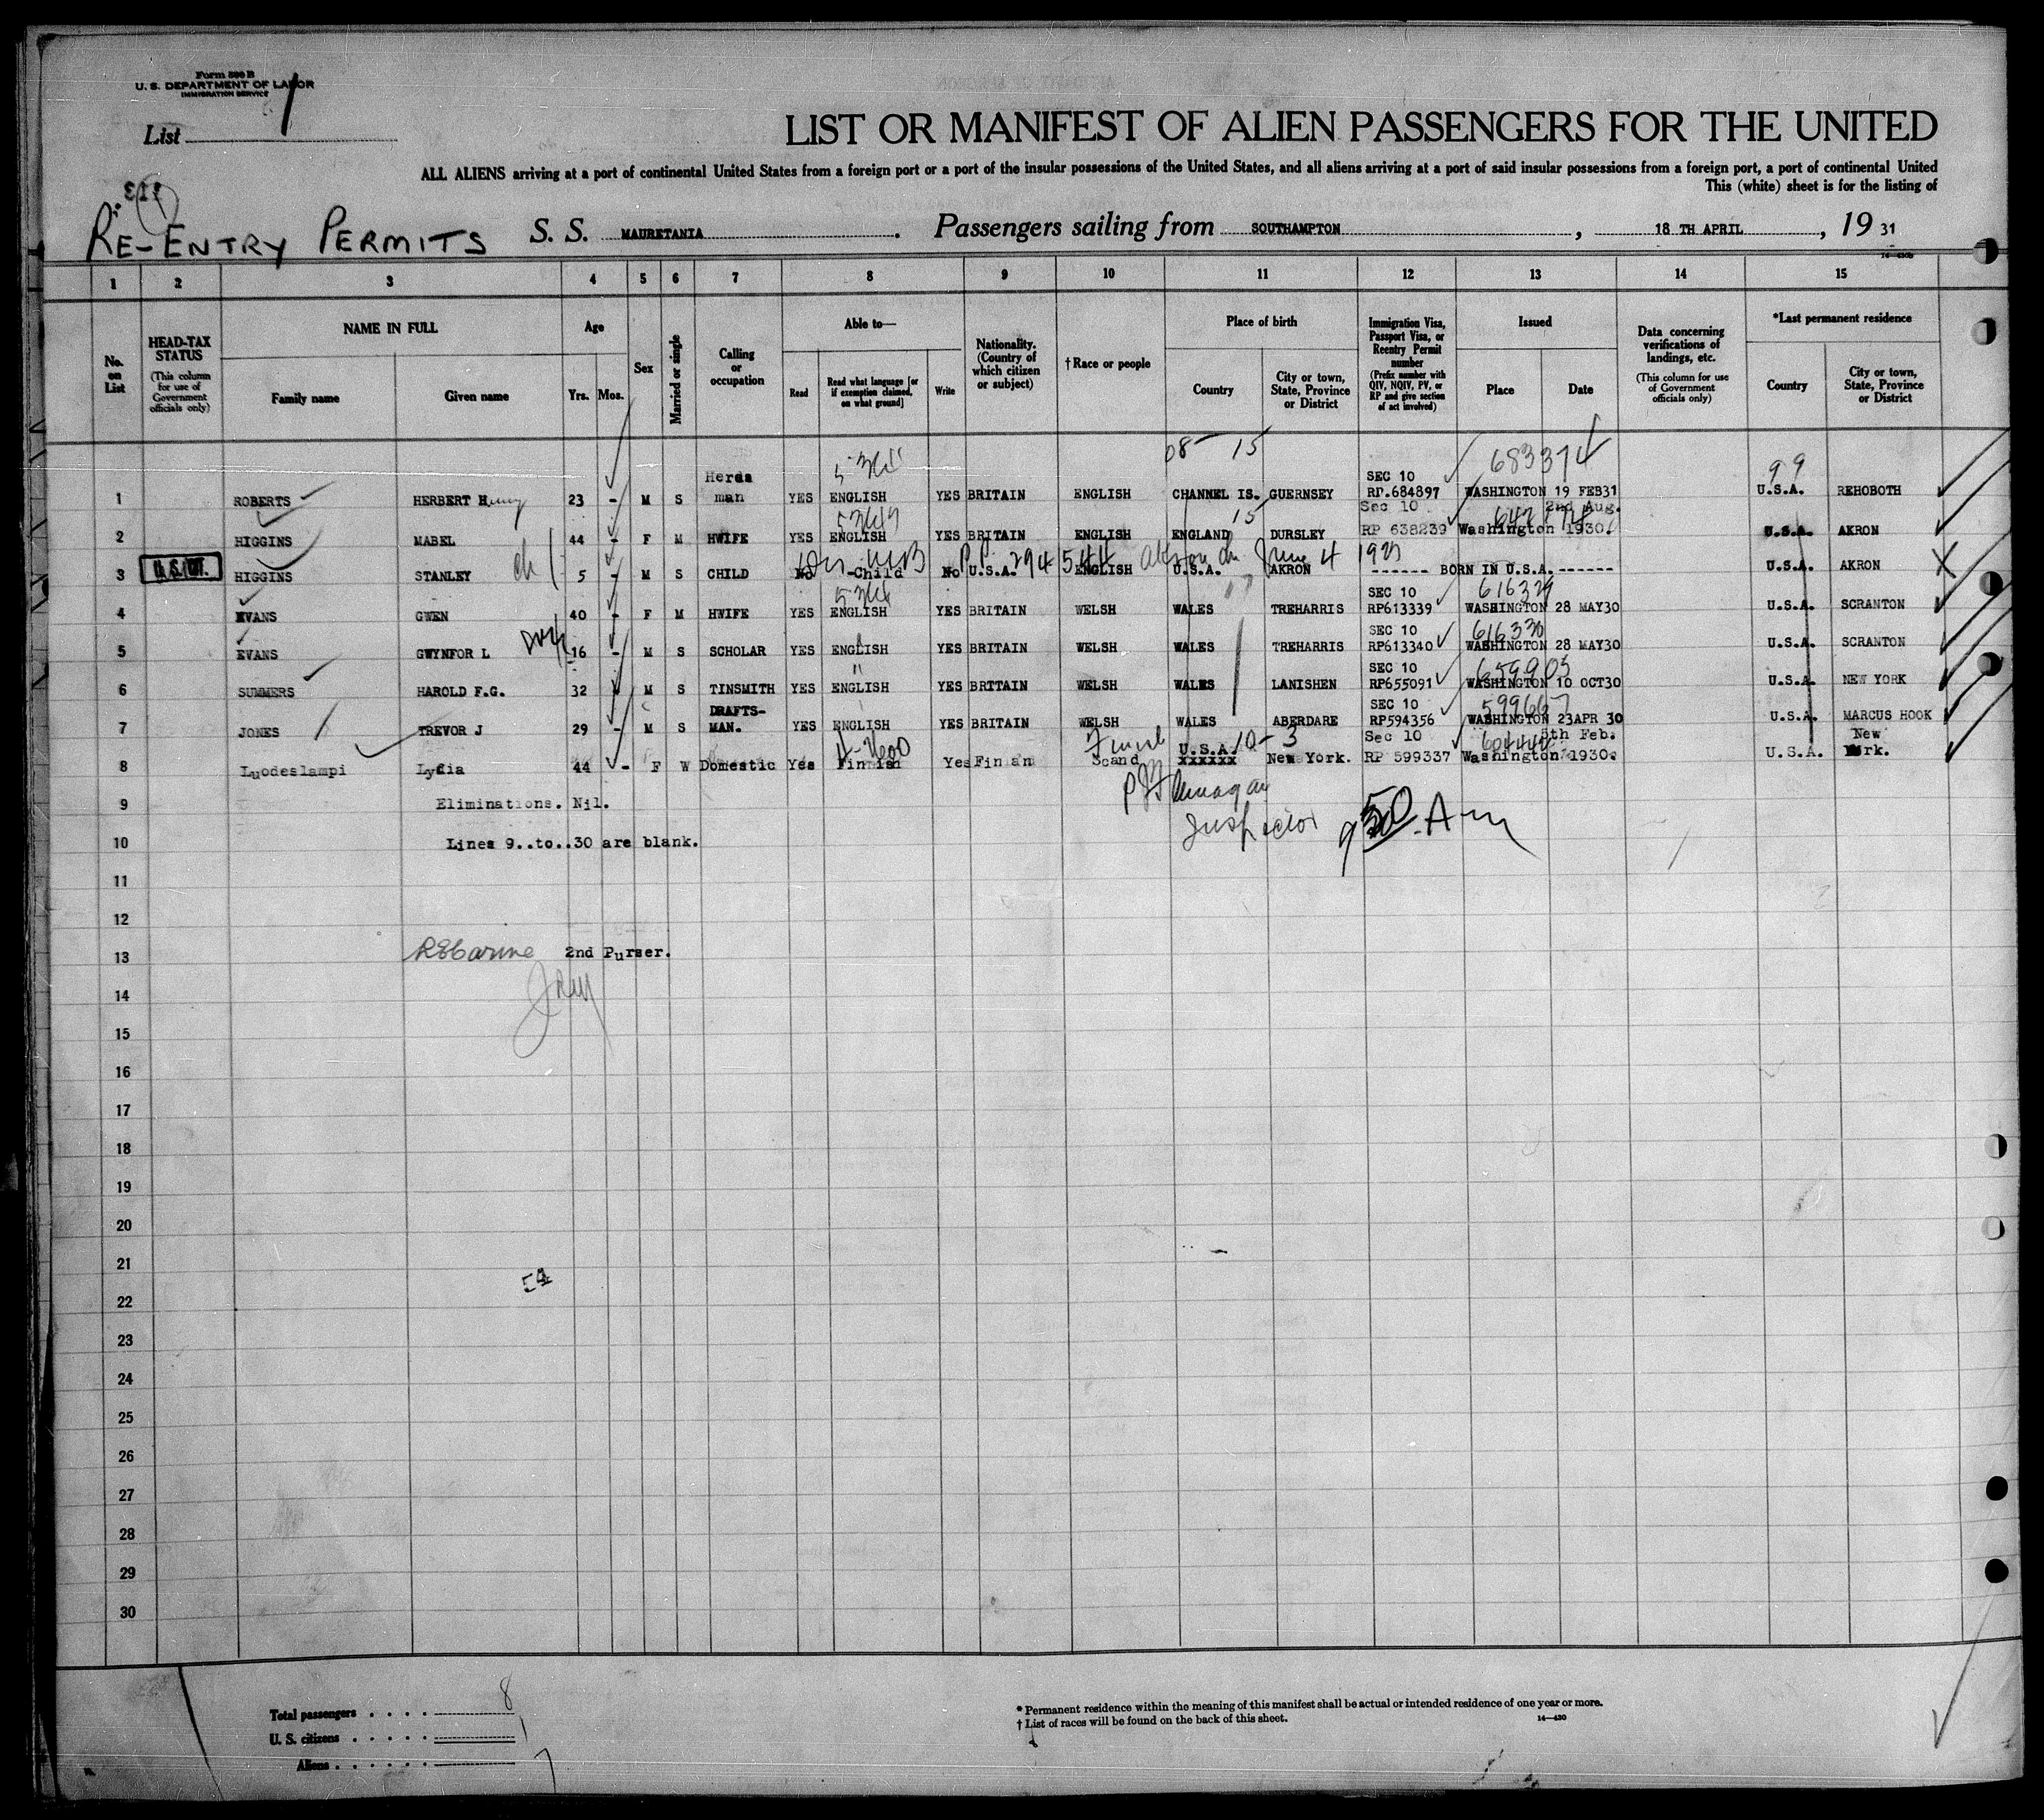 Form 500 B
U. S. DEPARTMENT OF LABOR
IMMIGRATION SERVICE
List 1
LIST OR MANIFEST OF ALIEN PASSENGERS FOR THE UNITED
ALL ALIENS arriving at a port of continental United States from a foreign port or a port of the insular possessions of the United States, and all aliens arriving at a port of said insular possessions from a foreign port, a port of continental United
This (white) sheet is for the listing of
RE-ENTRY PERMITS S. S. MAURETANIA. Passengers sailing from SOUTHAMPTON, 18 TH APRIL, 19 31
1 2 3 4 5 6 7 8 9 10 11 12 13 14 15
No. on List
HEAD-TAX STATUS (This column for use of Government officials only)
NAME IN FULL
Family name
Given name
Age
Yrs. Mos.
Sex
Married or single
Calling or occupation
Able to—
Read
Read what language [or if exemption claimed, on what ground]
Write
Nationality. (Country of which citizen or subject)
†Race or people
Place of birth
Country
City or town, State, Province or District
Immigration Visa, Passport Visa, or Reentry Permit number (Prefix number with QIV, NQIV, PV, or RP and give section of act involved)
Issued
Place
Date
Data concerning verifications of landings, etc. (This column for use of Government officials only)
*Last permanent residence
Country
City or town, State, Province or District
08 15 683374 99
1 ROBERTS HERBERT Henry 23 - M S Herdsman YES ENGLISH YES BRITAIN ENGLISH CHANNEL IS. GUERNSEY SEC 10 RP.684897 WASHINGTON 19 FEB31 U.S.A. REHOBOTH
15
2 HIGGINS MABEL 44 - F M HWIFE YES ENGLISH YES BRITAIN ENGLISH ENGLAND DURSLEY Sec 10 RP 638239 Washington 2nd Aug. 1930. U.S.A. AKRON
P.P. 294544 Akron June 4 1927
3 U.S. CIT. HIGGINS STANLEY ch 5 - M S CHILD No -Child No U.S.A. ENGLISH U.S.A. AKRON ------ BORN IN U.S.A. ------ U.S.A. AKRON
616329
4 EVANS GWEN 40 - F M HWIFE YES ENGLISH YES BRITAIN WELSH WALES TREHARRIS SEC 10 RP613339 WASHINGTON 28 MAY30 U.S.A. SCRANTON
616330
5 EVANS GWYNFOR L 16 - M S SCHOLAR YES ENGLISH YES BRITAIN WELSH WALES TREHARRIS SEC 10 RP613340 WASHINGTON 28 MAY30 U.S.A. SCRANTON
659905
6 SUMMERS HAROLD F.G. 32 M S TINSMITH YES ENGLISH YES BRTTAIN WELSH WALES LANISHEN SEC 10 RP655091 WASHINGTON 10 OCT30 U.S.A. NEW YORK
599667
7 JONES TREVOR J 29 - M S DRAFTS-MAN. YES ENGLISH YES BRITAIN WELSH WALES ABERDARE SEC 10 RP594356 WASHINGTON 23APR 30 U.S.A. MARCUS HOOK
10-3
8 Luodeslampi Lydia 44 - F W Domestic Yes Finnish Yes Finland Scand U.S.A. xxxxxx New York. Sec 10 RP 599337 Washington 5th Feb. 1930. U.S.A. New York.
9 Eliminations. Nil.
Inspector 950 Am
10 Lines 9..to..30 are blank.
11
12
13 2nd Purser.
14
15
16
17
18
19
20
21
22
23
24
25
26
27
28
29
30
Total passengers . . . . . 8
U. S. citizens . . . . . 1
Aliens . . . . . 7
* Permanent residence within the meaning of this manifest shall be actual or intended residence of one year or more.
† List of races will be found on the back of this sheet.
14—430